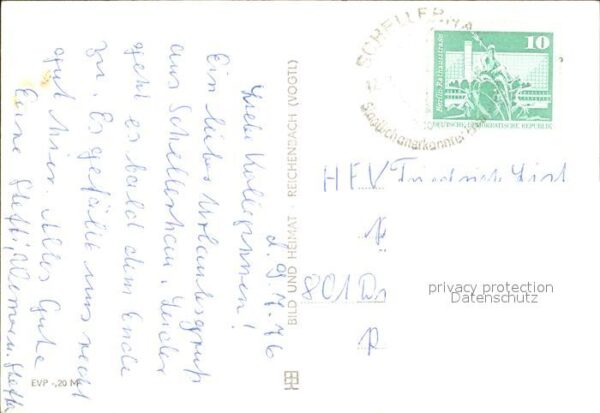 d. 9.7.76
Liebe Kolleginnen!
Ein liebes Urlaubsgruß
aus Schellerhau. Leider
geht es bald dem Ende
zu. Es gefällt uns recht
gut hier. Alles Gute
Eure Steffi,
BILD UND HEIMAT REICHENBACH (VOGTL)
EVP -,20 M
SCHELLERHA
10
Berlin, Rathausstraße
DEUTSCHE DEMOKRATISCHE REPUBLIK
HFV Friedrich List
801 Dr
privacy protection
Datenschutz